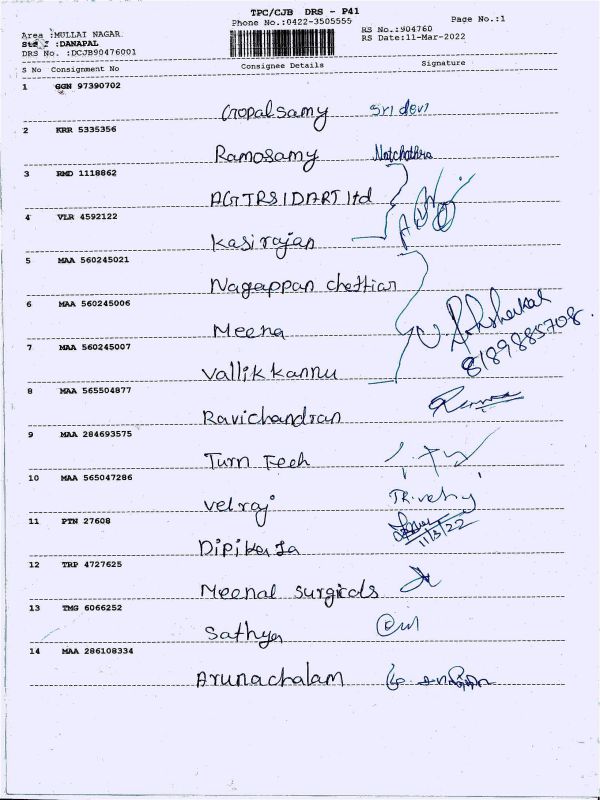 TPC/CJB DRS - P41
Phone No.:0422-3505555
Page No.:1
Area :MULLAI NAGAR
:DANAPAL
DRS No. :DCJB90476001
RS No.:904760
RS Date:11-Mar-2022
S No Consignment No Consignee Details Signature
1 GGN 97390702
Gopalsamy Sri devi
2 KRR 5335356
Ramosamy Natchathra
3 RMD 1118862
AGTRSIDART ltd
4 VLR 4592122
Kasirajan
5 MAA 560245021
Nagappan chettiar
6 MAA 560245006
Meena
8189885708.
7 MAA 560245007
Vallikkannu
8 MAA 565504877
Ravichandran
9 MAA 284693575
Turn Tech
10 MAA 565047286
Velraj
11 PTN 27608
11/3/22
12 TRP 4727625
Meenal surgicals
13 TMG 6066252
Sathya
14 MAA 286108334
Arunachalam